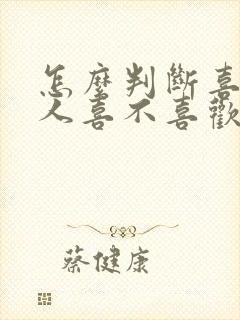 怎麼判斷喜
人喜不喜歡
蔡健康